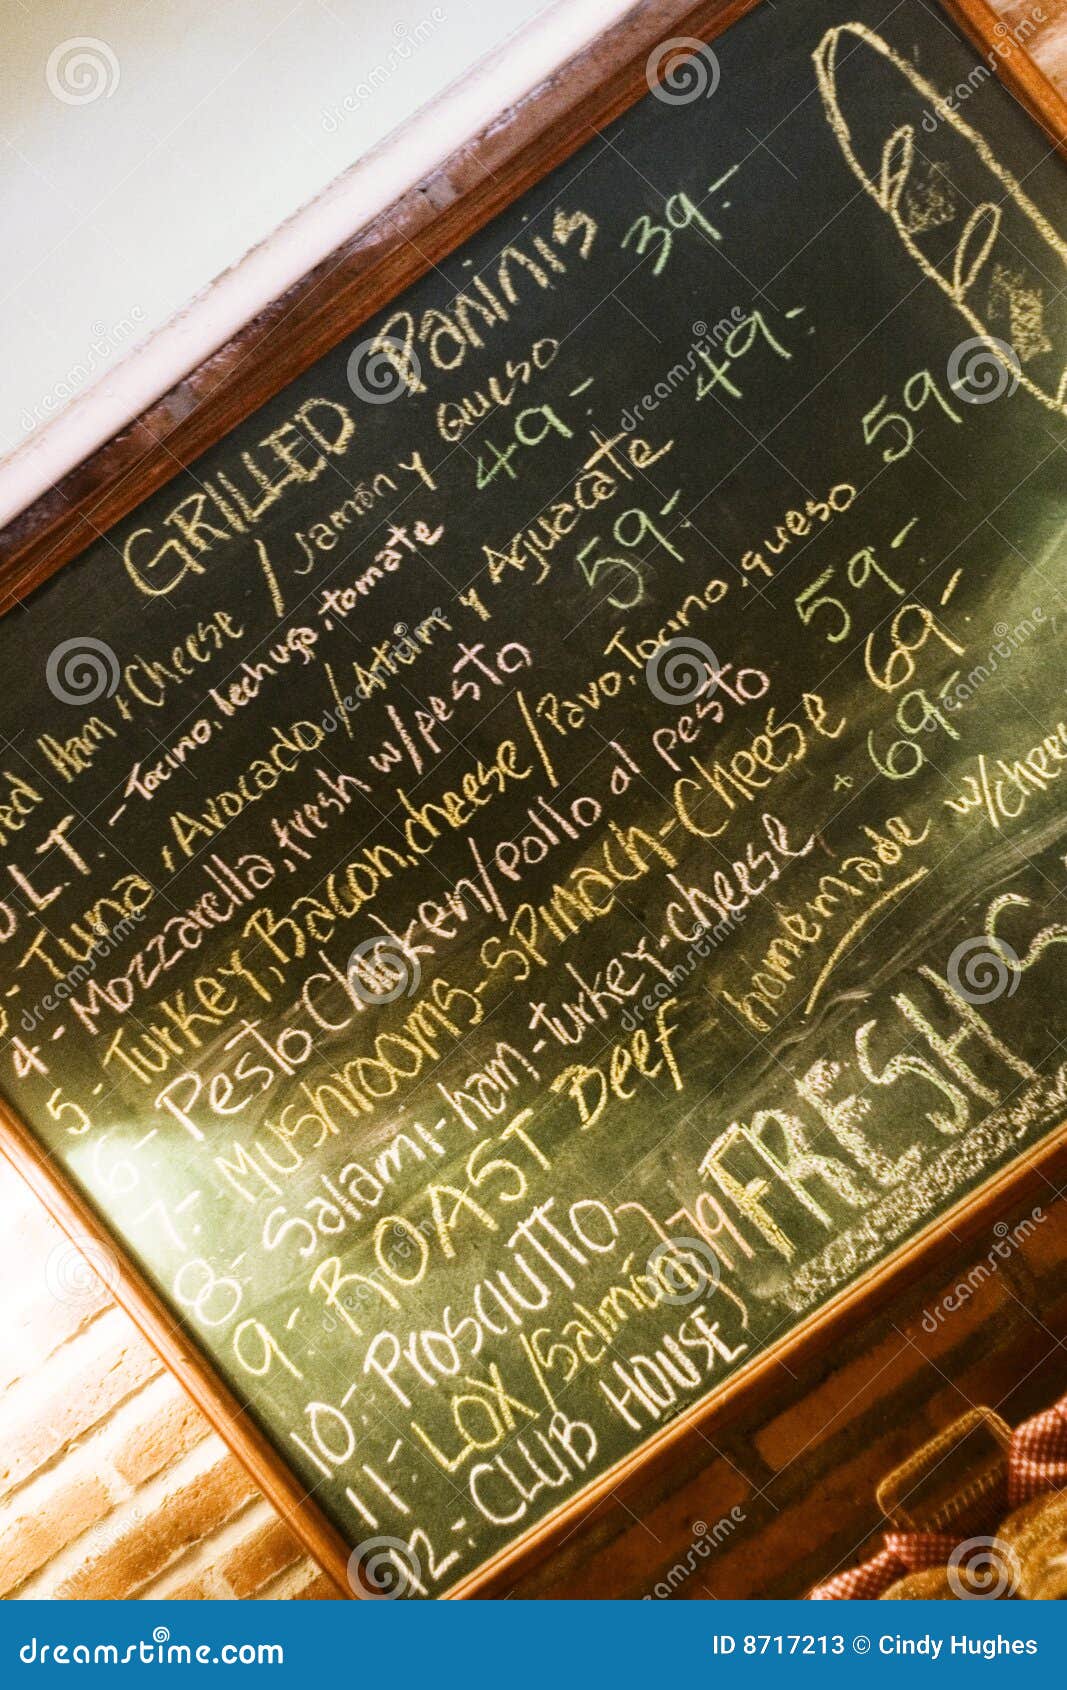 GRILLED Paninis
Ham + Cheese / Jamón y Queso 39.-
L.T. - Tocino, lechuga, tomate 49.-
- Tuna + Avocado / Atum y Aguacate 49.-
4 - Mozzarella, fresh w/pesto 59.-
5 - Turkey, Bacon, cheese / Pavo, Tocino, queso 59.-
6 - Pesto Chicken / pollo al pesto 59.-
7 - Mushrooms - Spinach - Cheese 69.-
8 - Salami - ham - turkey - cheese, + 69.-
9 - ROAST BEEF homemade w/chee
10 - Prosciutto
11 - LOX / Salmón 79
12 - CLUB HOUSE
FRESH C
dreamstime.com
ID 8717213 © Cindy Hughes